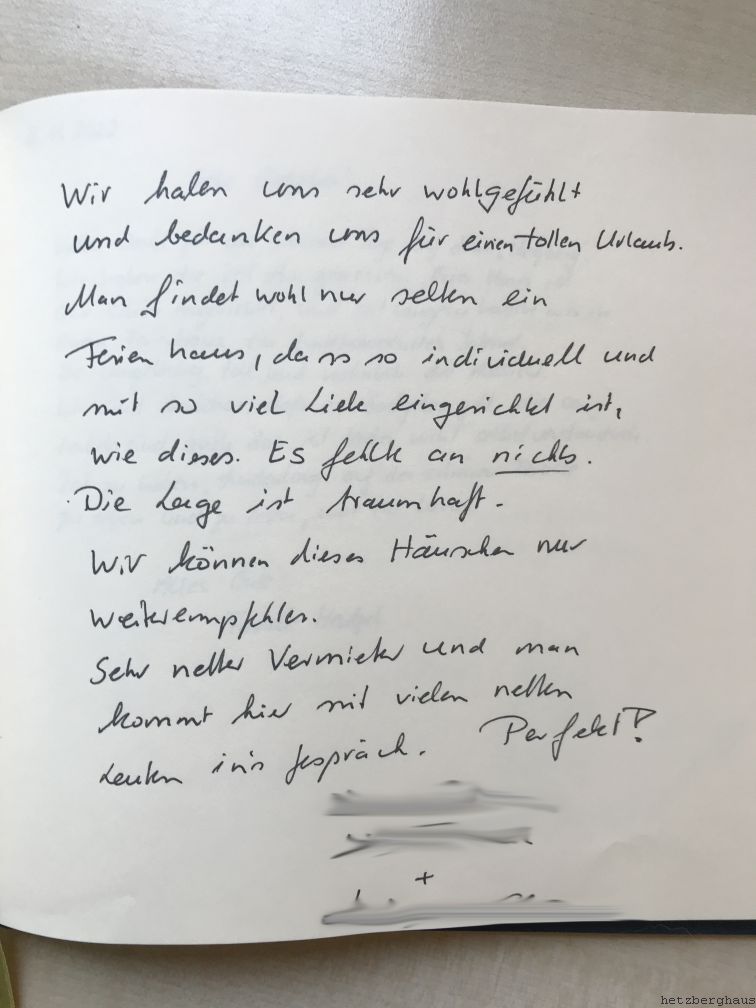 Wir haben uns sehr wohlgefühlt
und bedanken uns für einen tollen Urlaub.
Man findet wohl nur selten ein
Ferienhaus, dass so individuell und
mit so viel Liebe eingerichtet ist,
wie dieses. Es fehlte an nichts.
Die Lage ist traumhaft.
Wir können dieses Häuschen nur
weiterempfehlen.
Sehr netter Vermieter und man
kommt hier mit vielen netten
Leuten in's Gespräch. Perfekt!
+
hetzberghaus